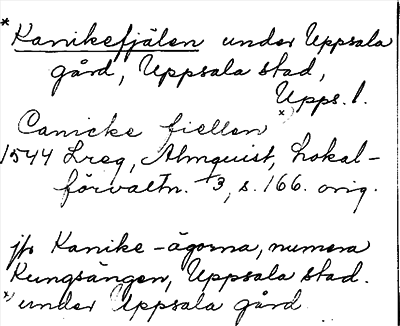 * Kanikefjälen under Uppsala
gård, Uppsala stad,
Upps. l.
Canicke fiellen x
1544 Lreg, Almquist, Lokal-
förvaltn. 3, s. 166. orig.
jfr Kanike-ägorna, numera
Kungsängen, Uppsala stad.
x) under Uppsala gård